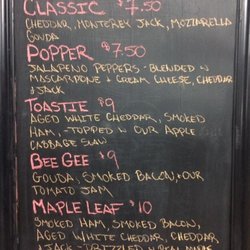 CLASSIC $7.50
CHEDDAR, MONTEREY JACK, MOZZARELLA
GOUDA
POPPER $7.50
JALAPENO PEPPERS - BLENDED W
MASCARPONE & CREAM CHEESE, CHEDDAR
& JACK
TOASTIE $9
AGED WHITE CHEDDAR, SMOKED
HAM, - TOPPED W OUR APPLE
CABBAGE SLAW
BEE GEE $9
GOUDA, SMOKED BACON, + OUR
TOMATO JAM
MAPLE LEAF $10
SMOKED HAM, SMOKED BACON,
AGED WHITE CHEDDAR, CHEDDAR
& JACK - DRIZZLED W REAL MAPLE